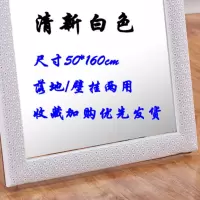 清新白色
尺寸50*160cm
落地/壁挂两用
收藏加购优先发货